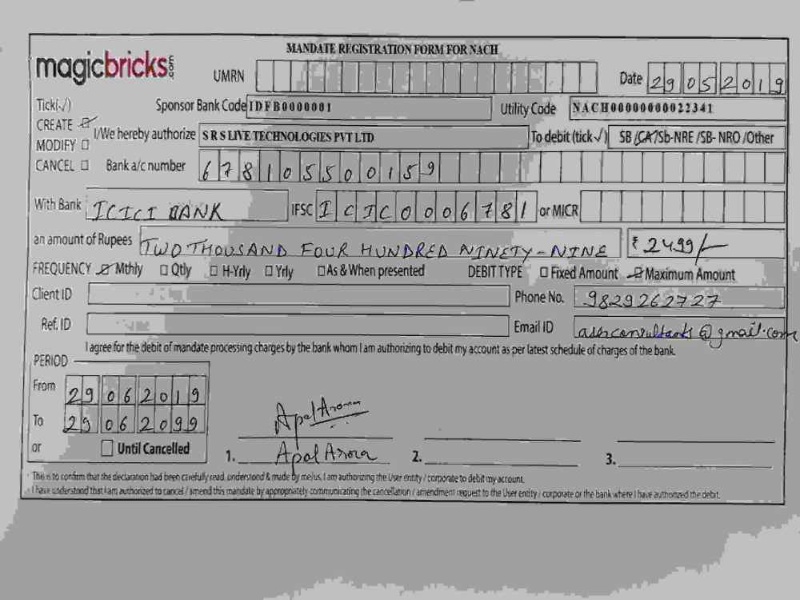 magicbricks.com
MANDATE REGISTRATION FORM FOR NACH
UMRN Date 29052019
Tick(√) Sponsor Bank Code IDFB0000001 Utility Code NACH00000000022341
CREATE ☑ I/We hereby authorize S R S LIVE TECHNOLOGIES PVT LTD To debit (tick√) SB /CA/Sb-NRE /SB- NRO /Other
MODIFY ☐
CANCEL ☐ Bank a/c number 678105500159
With Bank ICICI BANK IFSC ICIC0006781 or MICR
an amount of Rupees TWO THOUSAND FOUR HUNDRED NINETY-NINE ₹ 2499/-
FREQUENCY ☑ Mthly ☐ Qtly ☐ H-Yrly ☐ Yrly ☐ As & When presented DEBIT TYPE ☐ Fixed Amount ☑ Maximum Amount
Client ID Phone No. 9829262727
Ref. ID Email ID @gmail.com
I agree for the debit of mandate processing charges by the bank whom I am authorizing to debit my account as per latest schedule of charges of the bank.
PERIOD
From 29062019
To 29062099
or ☐ Until Cancelled
Apal Arora
1. Apal Arora 2. 3.
· This is to confirm that the declaration had been carefully read, understand & made by me/us. I am authorizing the User entity / corporate to debit my account.
· I have understood that I am authorized to cancel / amend this mandate by appropriately communicating the cancellation / amendment request to the User entity / corporate or the bank where I have authorized the debit.